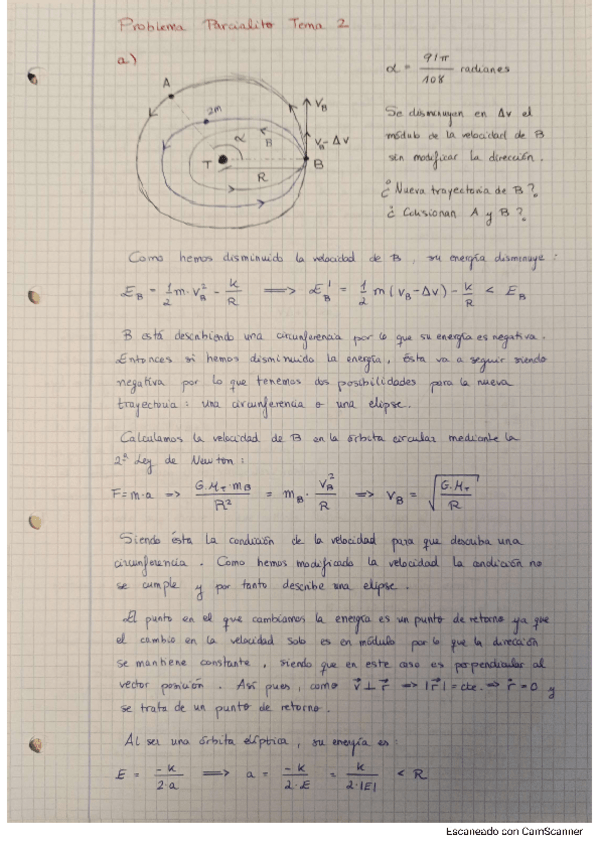 Problema Parcialito Tema 2
a)
A
2m
V_B
V_B - Δv
α
B
T
R
B
α = 91π/108 radianes
Se disminuyen en Δv el
módulo de la velocidad de B
sin modificar la dirección.
¿ Nueva trayectoria de B ?
¿ Colisionan A y B ?
Como hemos disminuido la velocidad de B, su energía disminuye :
E_B = 1/2 m · V_B² - k/R ⟹ E_B' = 1/2 m (V_B - Δv) - k/R < E_B
B está describiendo una circunferencia por lo que su energía es negativa.
Entonces si hemos disminuido la energía, ésta va a seguir siendo
negativa por lo que tenemos dos posibilidades para la nueva
trayectoria : una circunferencia o una elipse.
Calculamos la velocidad de B en la órbita circular mediante la
2ª Ley de Newton :
F = m·a => G.M_T·m_B/R² = m_B · V_B²/R => V_B = √(G.M_T/R)
Siendo ésta la condición de la velocidad para que describa una
circunferencia. Como hemos modificado la velocidad la condición no
se cumple y por tanto describe una elipse.
El punto en el que cambiamos la energía es un punto de retorno ya que
el cambio en la velocidad solo es en módulo por lo que la dirección
se mantiene constante, siendo que en este caso es perpendicular al
vector posición. Así pues, como v⃗ ⊥ r⃗ => |r⃗| = cte. => ṙ = 0 y
se trata de un punto de retorno.
Al ser una órbita elíptica, su energía es :
E = -k/2·a ⟹ a = -k/2·E = k/2·|E| < R
Escaneado con CamScanner